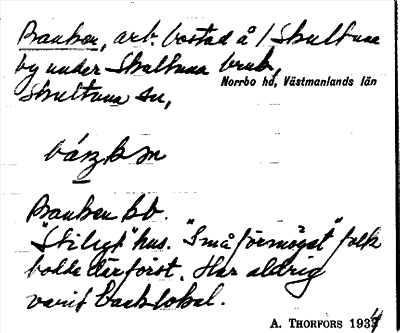 Banken, arb. bostad å 1 Skultuna
by under Skultuna bruk,
Norrbo hd, Västmanlands län
Skultuna sn,
Banken bb.
"Stiligt" hus. "Småförmöget" folk
bodde där först. Har aldrig
varit banklokal.
A. THORFORS 1934